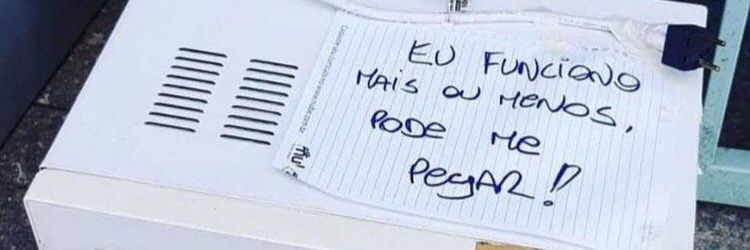 EU FUNCIONO
MAIS OU MENOS,
PODE ME
PEGAR!